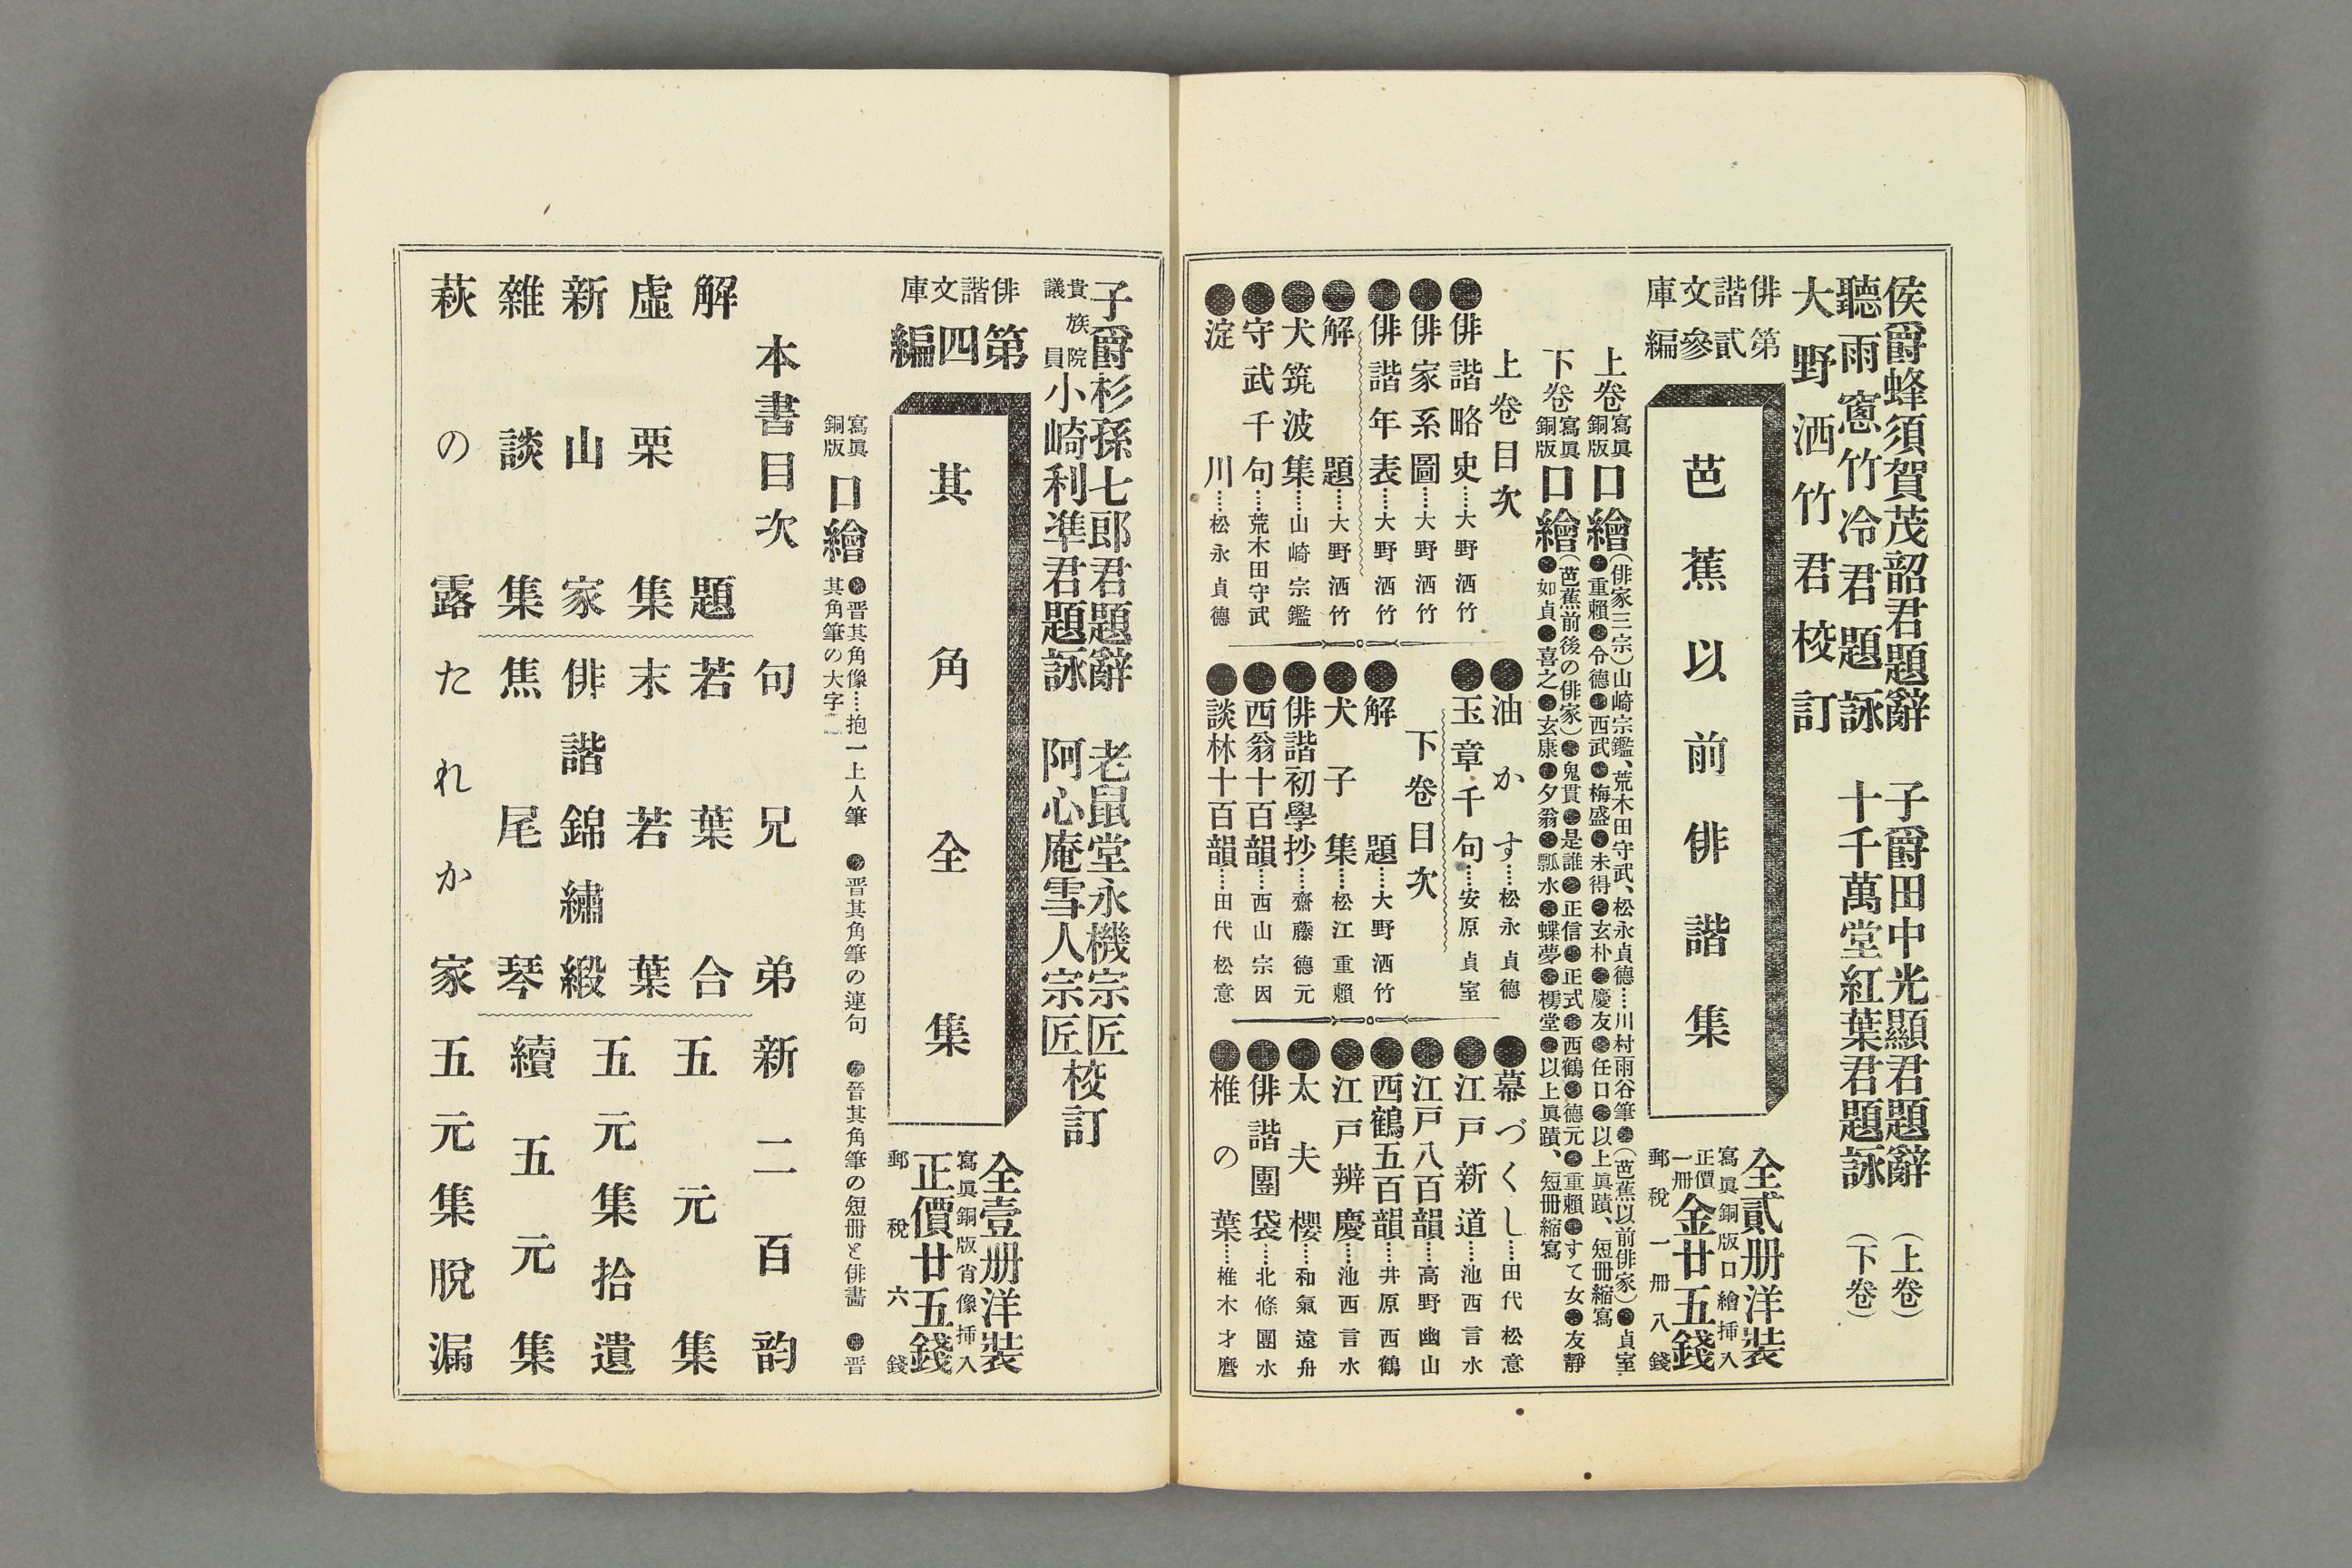 侯爵蜂須賀茂韶君題辭　子爵田中光顯君題辭（上卷）
聽雨窻竹冷君題詠　十千萬堂紅葉君題詠（下卷）
大野洒竹君校訂
俳諧文庫
第貳參編
芭蕉以前俳諧集
全貳册洋裝
寫眞銅版口繪挿入
正價一册金廿五錢
郵稅一册八錢
上卷寫眞銅版口繪（俳家三宗）山崎宗鑑、荒木田守武、松永貞德……川村雨谷筆●（芭蕉以前俳家）●貞室
●重賴●令德●西武●梅盛●未得●玄朴●慶友●任口●以上眞蹟、短册縮寫
下卷寫眞銅版口繪（芭蕉前後の俳家）●鬼貫●是誰●正信●正式●西鶴●德元●重賴●すて女●友靜
●如貞●喜之●玄康●夕翁●瓢水●蝶夢●樗堂●以上眞蹟、短册縮寫
上卷目次
●俳諧略史……大野洒竹
●俳家系圖……大野洒竹
●俳諧年表……大野洒竹
●解題……大野洒竹
●犬筑波集……山崎宗鑑
●守武千句……荒木田守武
●淀川……松永貞德
●油かす……松永貞德
●玉章千句……安原貞室
下卷目次
●解題……大野洒竹
●犬子集……松江重賴
●俳諧初學抄……齋藤德元
●西翁十百韻……西山宗因
●談林十百韻……田代松意
●幕づくし……田代松意
●江戸新道……池西言水
●江戸八百韻……高野幽山
●西鶴五百韻……井原西鶴
●江戸辨慶……池西言水
●太夫櫻……和氣遠舟
●俳諧團袋……北條團水
●椎の葉……椎木才麿
子爵杉孫七郎君題辭　老鼠堂永機宗匠
貴族院議員小崎利準君題詠　阿心庵雪人宗匠
校訂
俳諧文庫
第四編
其角全集
全壹册洋裝
寫眞銅版肖像挿入
正價廿五錢
郵稅六錢
寫眞銅版口繪●晋其角像……抱一上人筆　●晋其角筆の連句　●晋其角筆の短册と俳畵　●晋
其角筆の大字
本書目次
解題
虛栗集
新山家
雜談集
萩の露
句兄弟
若葉合
末若葉
俳諧錦繡緞
焦尾琴
たれか家
新二百韵
五元集
五元集拾遺
續五元集
五元集脫漏